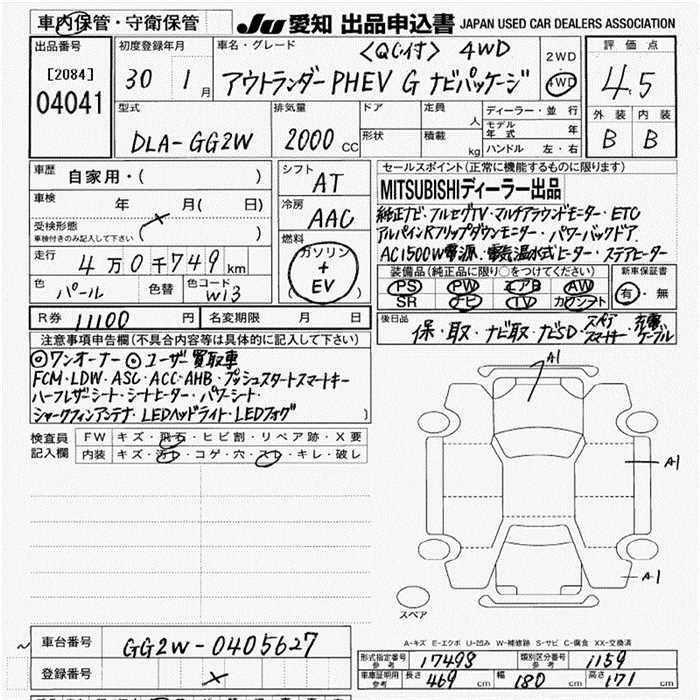 車内保管・守衛保管
JU 愛知 出品申込書 JAPAN USED CAR DEALERS ASSOCIATION
出品番号 [2084] 04041
初度登録年月 30 1月
車名・グレード <QC付> 4WD
アウトランダーPHEV G ナビパッケージ
2WD
4WD
評価点
4.5
外装 内装
B B
型式 DLA-GG2W
排気量 2000 CC
ドア
形状
定員 人
積載 kg
ディーラー・並行
モデル年式 年
ハンドル 左・右
車歴 自家用・( )
車検 年 月( 日)
受検形態
車検付きのみ記入して下さい ( )
走行 4万0千749km
色 パール
色替
色コード W13
シフト AT
冷房 AAC
燃料 ガソリン + EV
( )
セールスポイント(正常に機能するものに限ります)
MITSUBISHIディーラー出品
純正ナビ・フルセグTV・マルチアラウンドモニター・ETC
アルパインRフリップダウンモニター・パワーバックドア
AC1500W電源・電気温水式ヒーター・ステアヒーター
装備品(純正品に限り○をつけてください)
PS PW エアB AW
SR ナビ TV カワシート
新車保証書
有・無
R券 11100 円
名変期限 月 日
後日品 保・取・ナビ取・ナビSD・スペアスマートキー・充電ケーブル
注意事項申告欄(不具合内容は具体的に記入して下さい)
◎ワンオーナー ◎ユーザー買取車
FCM・LDW・ASC・ACC・AHB・プッシュスタートスマートキー
ハーフレザーシート・シートヒーター・パワーシート・
シャークフィンアンテナ・LEDヘッドライト・LEDフォグ )
検査員記入欄
FW キズ・飛石・ヒビ割・リペア跡・X要
内装 キズ・汚レ・コゲ・穴・スレ・キレ・破レ
A1
A1
A1
スペア
A-キズ E-エクボ U-凹み W-補修跡 S-サビ C-腐食 XX-交換済
車台番号 GG2W-0405627
登録番号
形式指定番号参考 17498
類別区分番号参考 1159
車庫証明用参考 長さ 469 cm 幅 180 cm 高さ 171 cm